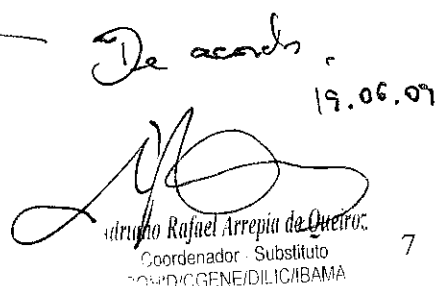 De acordo.
19.06.09
Adriano Rafael Arrepia de Queiroz
Coordenador - Substituto
/CGENE/DILIC/IBAMA
7